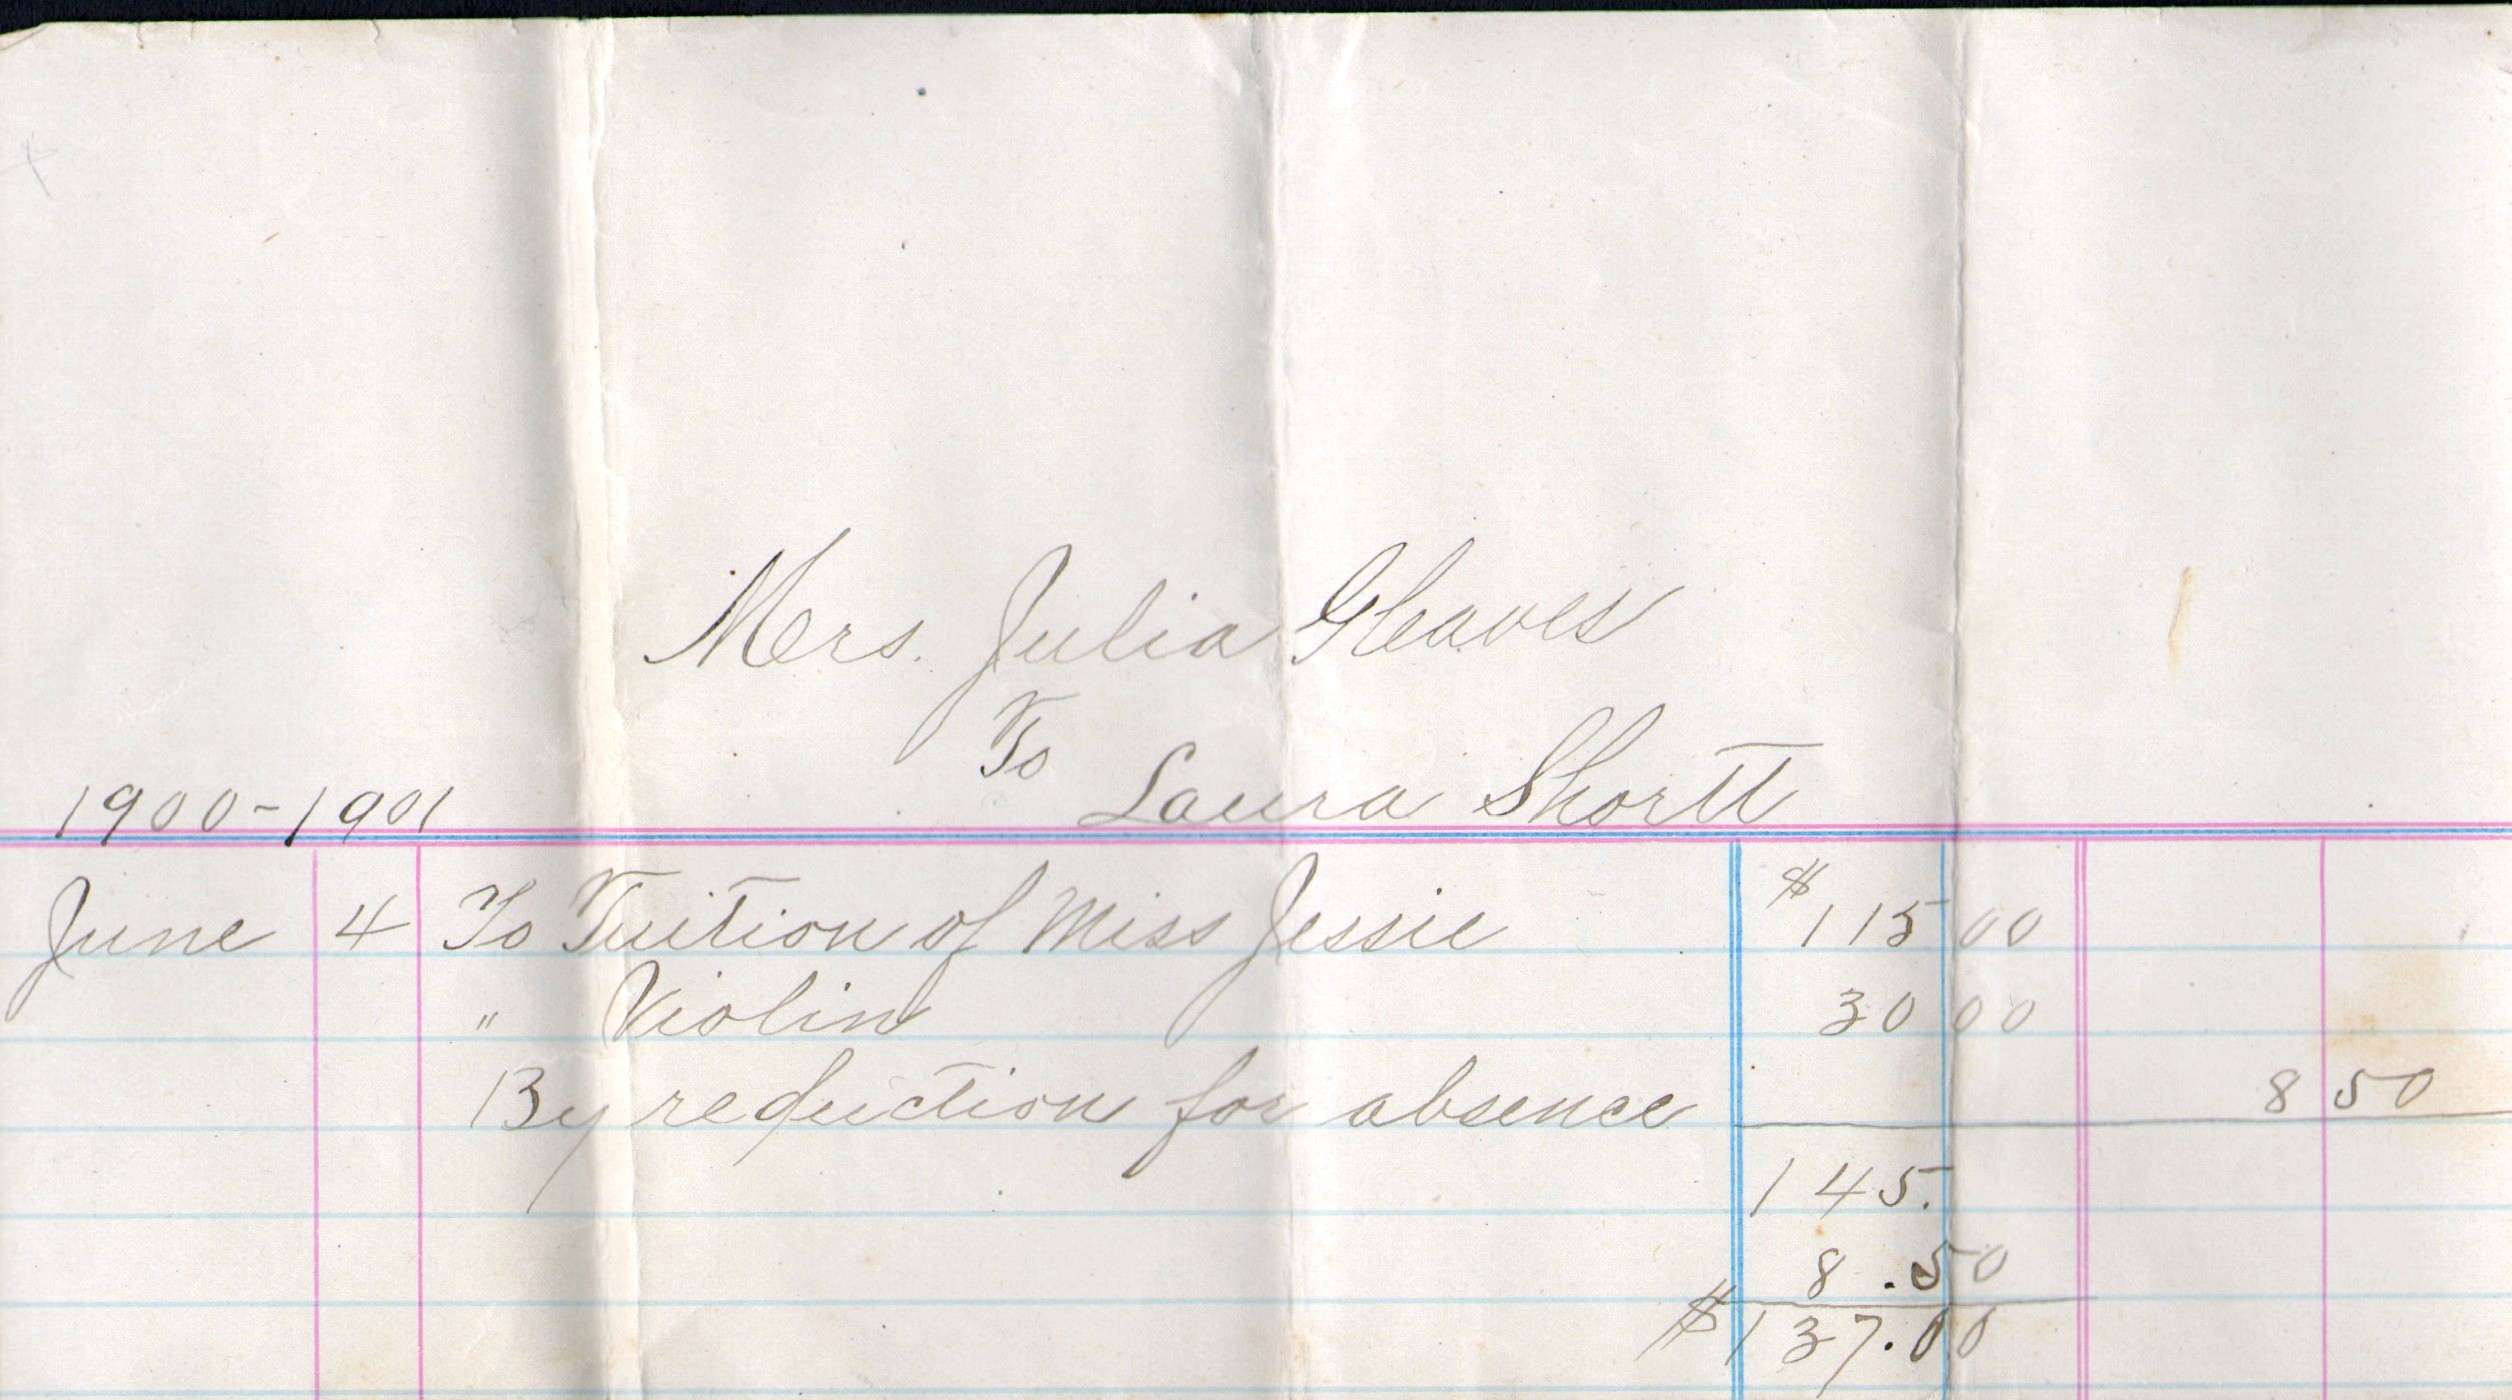 Mrs. Julia Gleaves
To
Laura Shortt
1900-1901
June 4 To Tuition of Miss Jessie $115 00
" Violin 30 00
By reduction for absence 8 50
145.
8.50
$137.00